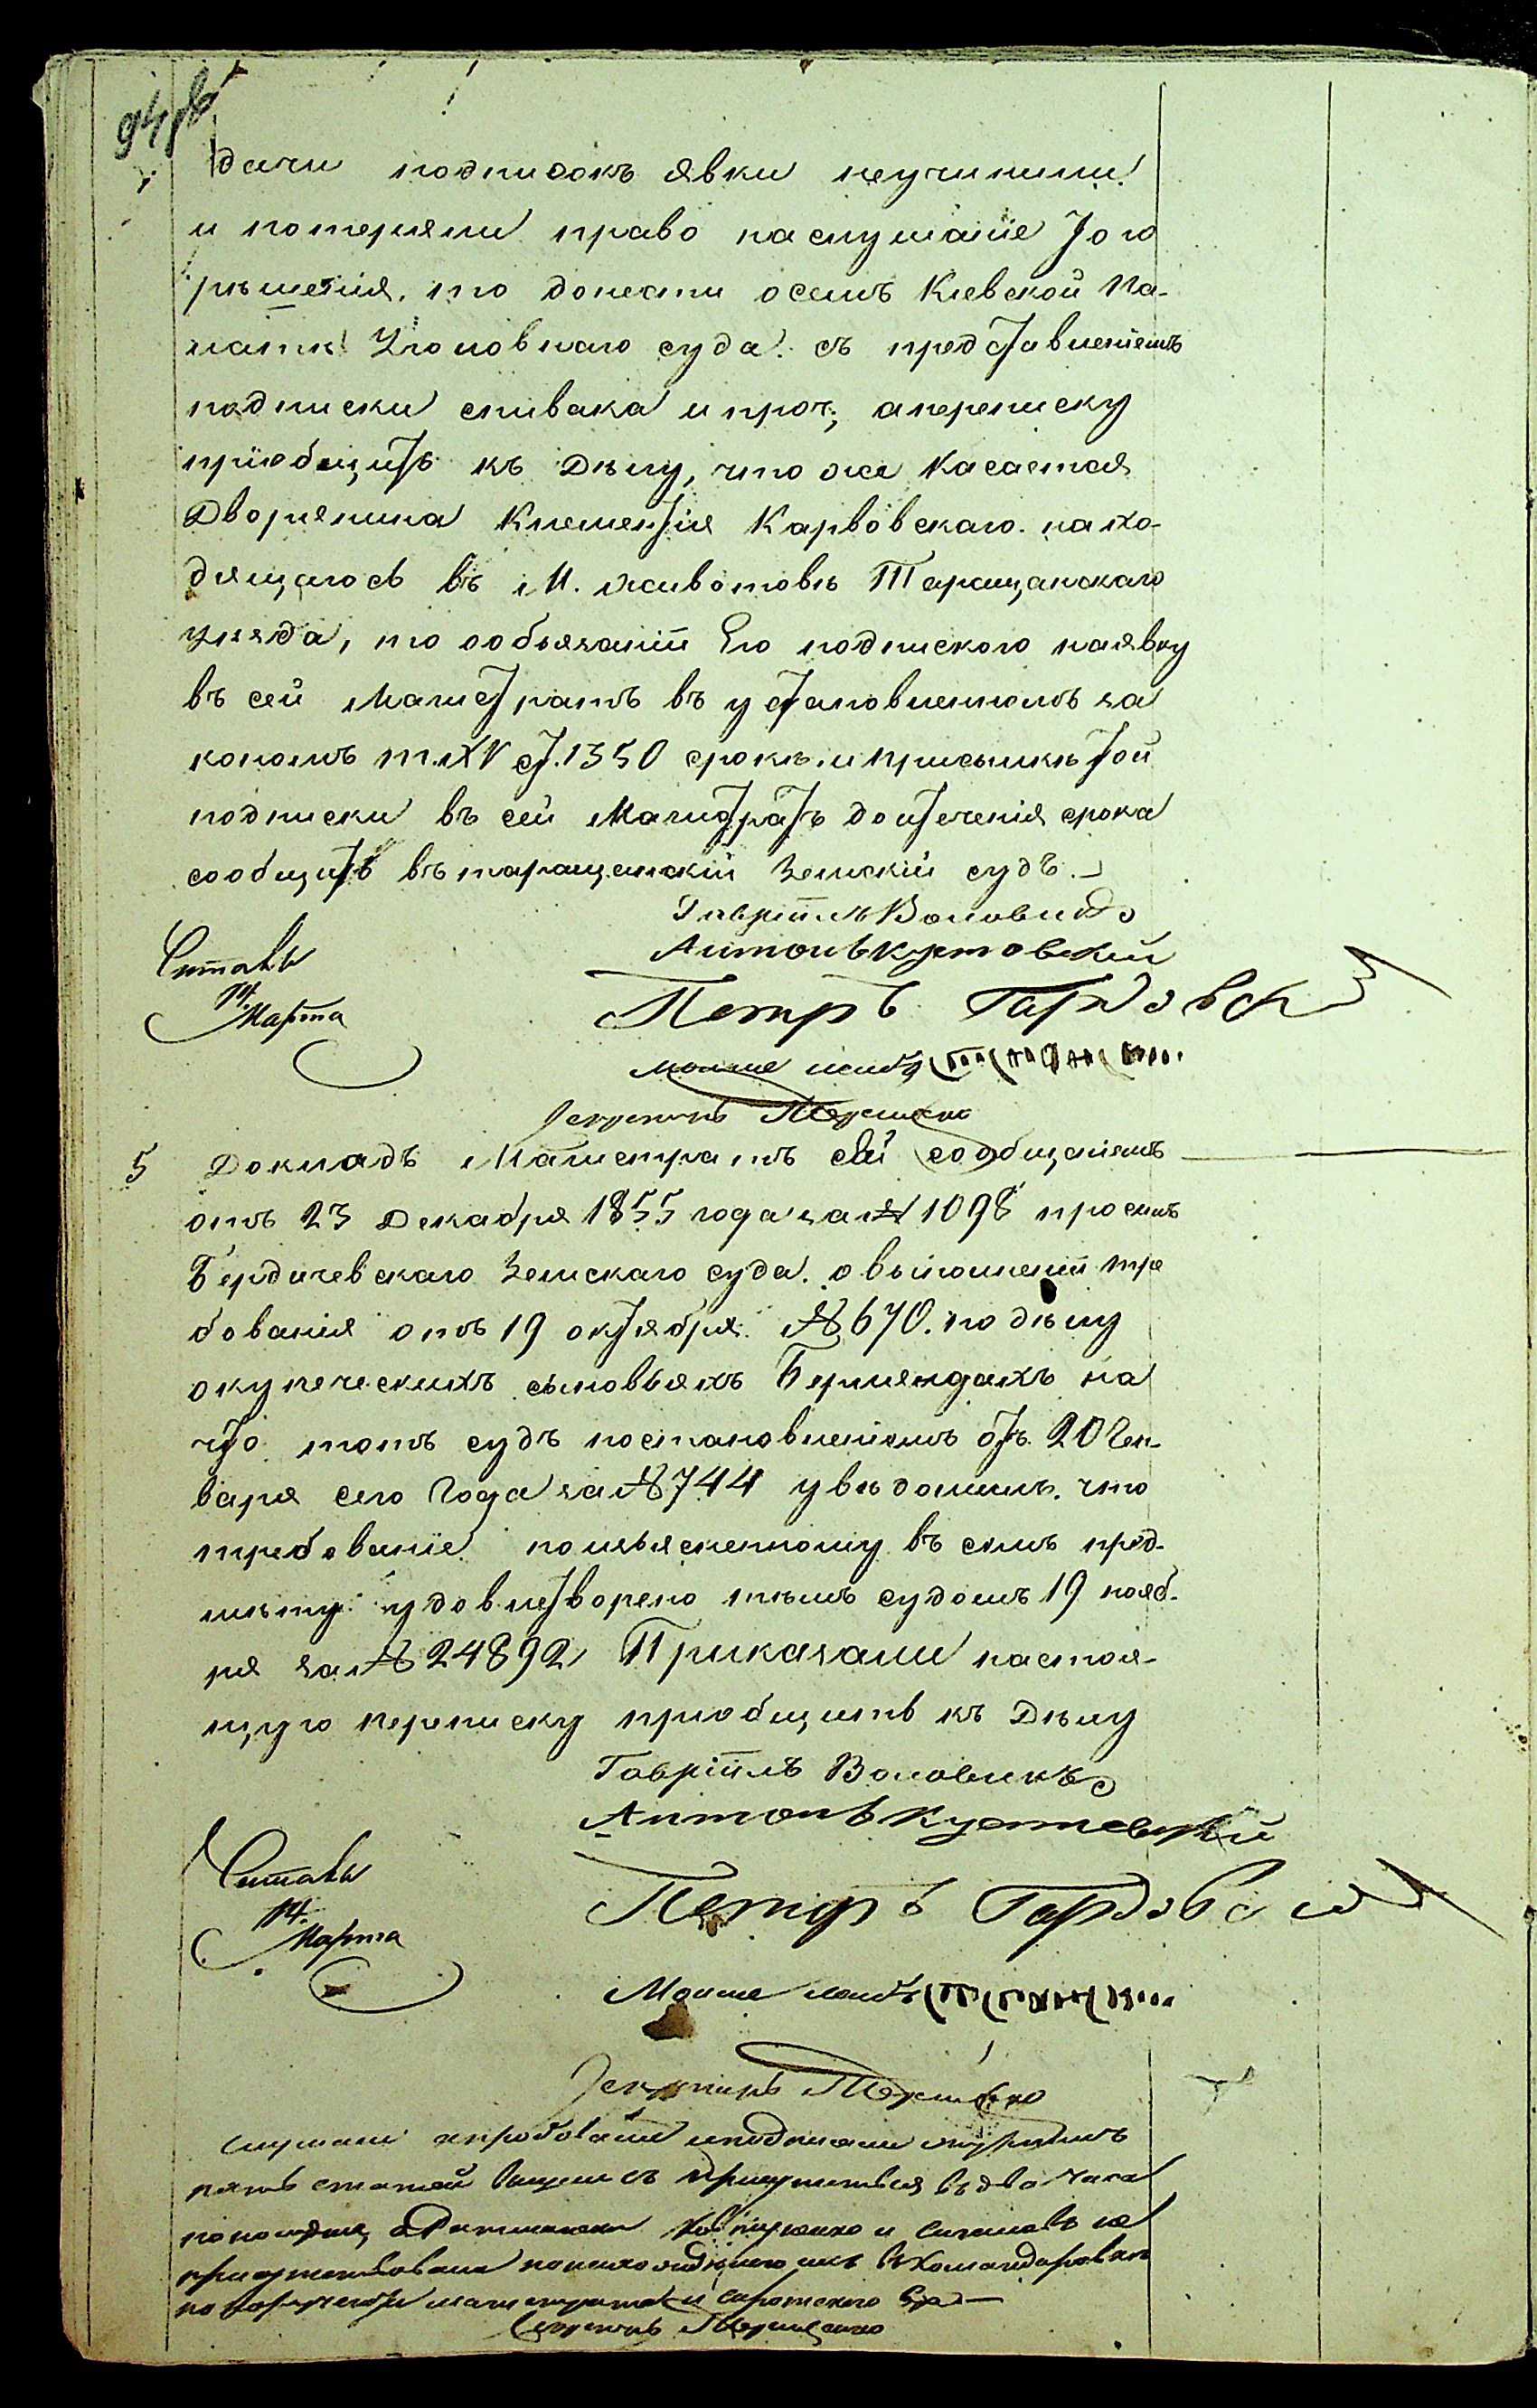 94 об
дачи подписокъ явки неучинили
и потеряли право наслушаніе того
рѣшенія, то донести осемъ Кіевской Па-
латѣ Уголовнаго суда съ представленіемъ
подписки спивака и проч; апереписку
пріобщить къ Дѣлу, что же Касается
Дворянина Клементія Карвовскаго нахо-
дящагося въ М. Животовѣ Таращанскаго
уѣзда, то ообязаніи Его подпискою наявку
въ сей Магистратъ въ установленномъ за
кономъ т. XV ст. 1350 срокѣ и присылкѣ той
подписки въ сей Магистратъ доистеченія срока
сообщить въ таращанскій Земскій судъ.
Гавріилъ Воловикъ
Антонъ Кустовскій
Читалъ
14.
Марта
Петръ
Мошке
Секретарь Терещенко
5 Докладъ Магистратъ сей сообщеніемъ
отъ 23 Декабря 1855 года за № 1098 просилъ
Бердичевскаго Земскаго суда о выполненіи тре
бованія отъ 19 октября № 670. по дѣлу
окупеческихъ сыновьяхъ Берляндахъ на
что тотъ судъ постановленіемъ отъ 20 Ген-
варя сего Года за № 744 увѣдомилъ, что
требованіе поизъясненному въ семъ пред-
мѣту удовлетворено тѣмъ судомъ 19 нояб-
ря за № 24892, Приказали настоя-
щую переписку пріобщить къ Дѣлу
Гавріилъ Воловикъ
Антонъ Кустовскій
Читалъ
14.
Марта
Петръ
Мошке
Секретарь Терещенко
слушали иподписали
пять статей въ два часа
пополудни, и
присутствовали
магистрата и сиротскаго
Секретарь Терещенко